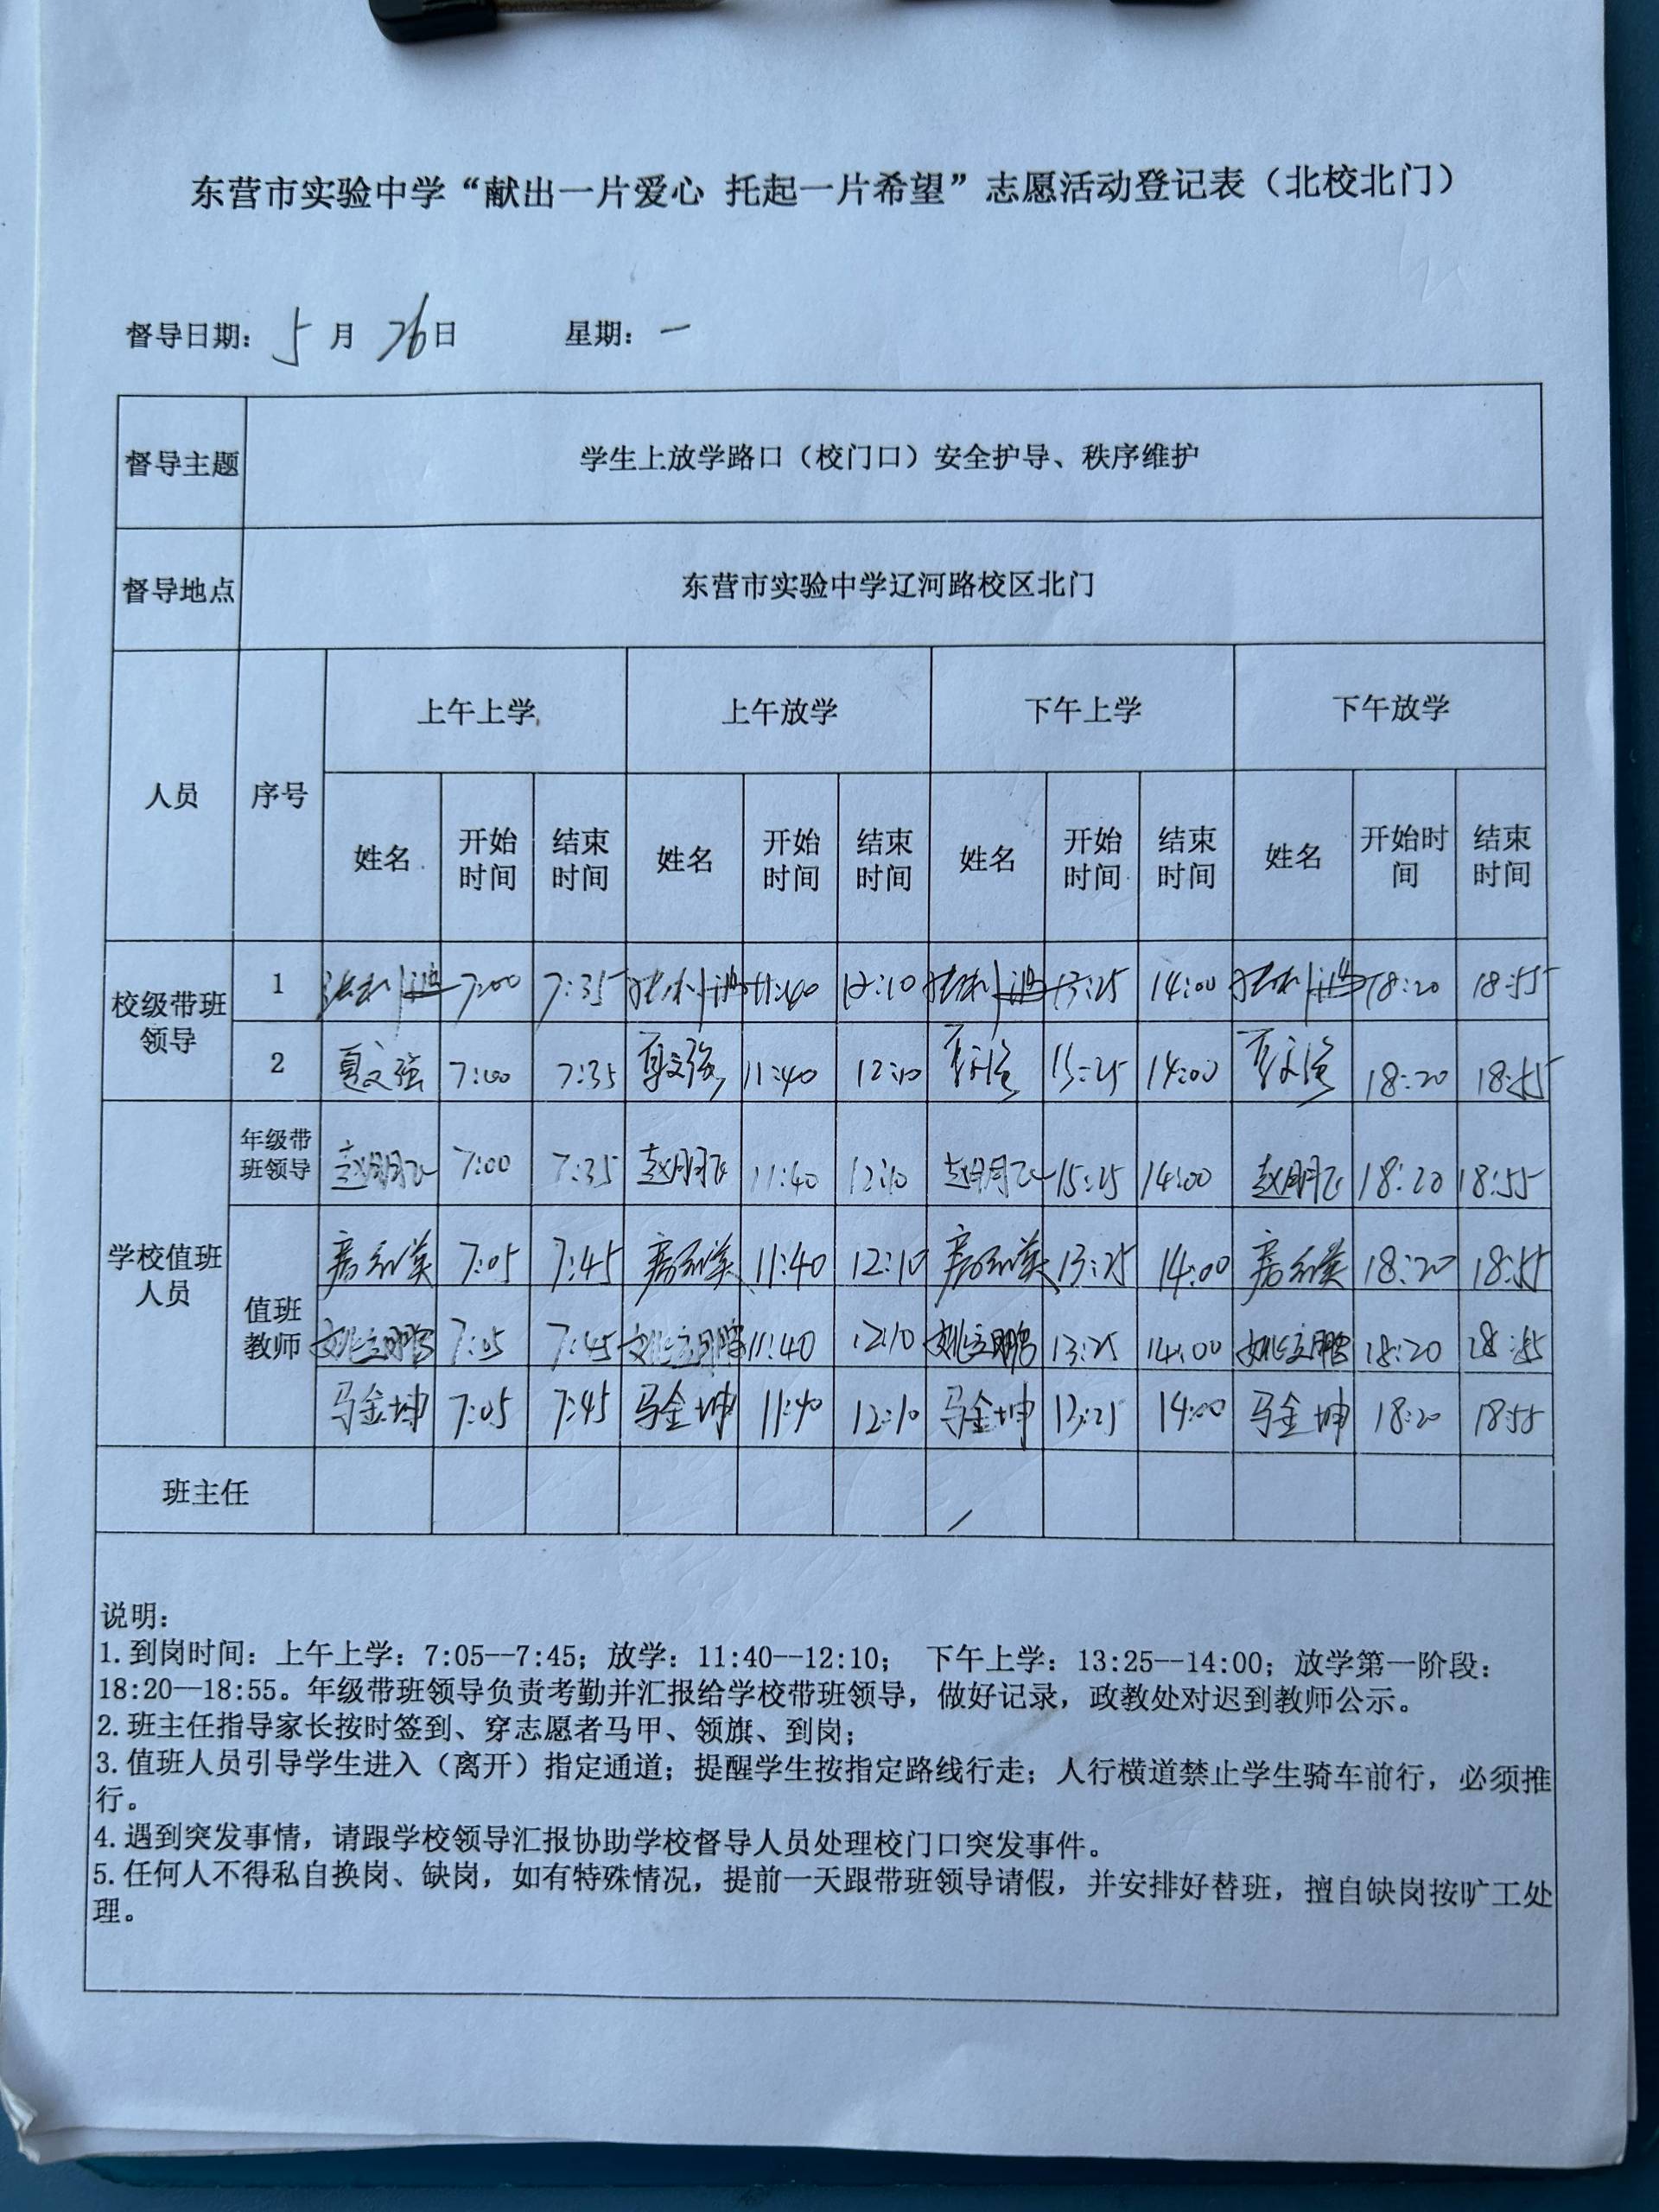 东营市实验中学“献出一片爱心 托起一片希望”志愿活动登记表（北校北门）
督导日期： 5 月 26 日 星期： 一
督导主题 学生上放学路口（校门口）安全护导、秩序维护
督导地点 东营市实验中学辽河路校区北门
人员 序号 上午上学 上午放学 下午上学 下午放学
姓名 开始时间 结束时间 姓名 开始时间 结束时间 姓名 开始时间 结束时间 姓名 开始时间 结束时间
校级带班领导
1 7:00 7:35 11:40 12:10 13:25 14:00 18:20 18:55
2 夏文强 7:00 7:35 夏文强 11:40 12:10 夏文强 13:25 14:00 夏文强 18:20 18:55
学校值班人员
年级带班领导 赵明飞 7:00 7:35 赵明飞 11:40 12:10 赵明飞 14:00 赵明飞 18:20 18:55
值班教师
7:05 7:45 11:40 12:10 13:25 14:00 18:20 18:55
姚立鹏 7:05 7:45 姚立鹏 11:40 12:10 姚立鹏 13:25 14:00 姚立鹏 18:20 18:55
马金坤 7:05 7:45 马金坤 11:40 12:10 马金坤 13:25 14:00 马金坤 18:20 18:55
班主任
说明：
1.到岗时间：上午上学：7:05--7:45；放学：11:40--12:10； 下午上学：13:25--14:00；放学第一阶段：
18:20--18:55。年级带班领导负责考勤并汇报给学校带班领导，做好记录，政教处对迟到教师公示。
2.班主任指导家长按时签到、穿志愿者马甲、领旗、到岗；
3.值班人员引导学生进入（离开）指定通道；提醒学生按指定路线行走；人行横道禁止学生骑车前行，必须推
行。
4.遇到突发事情，请跟学校领导汇报协助学校督导人员处理校门口突发事件。
5.任何人不得私自换岗、缺岗，如有特殊情况，提前一天跟带班领导请假，并安排好替班，擅自缺岗按旷工处
理。